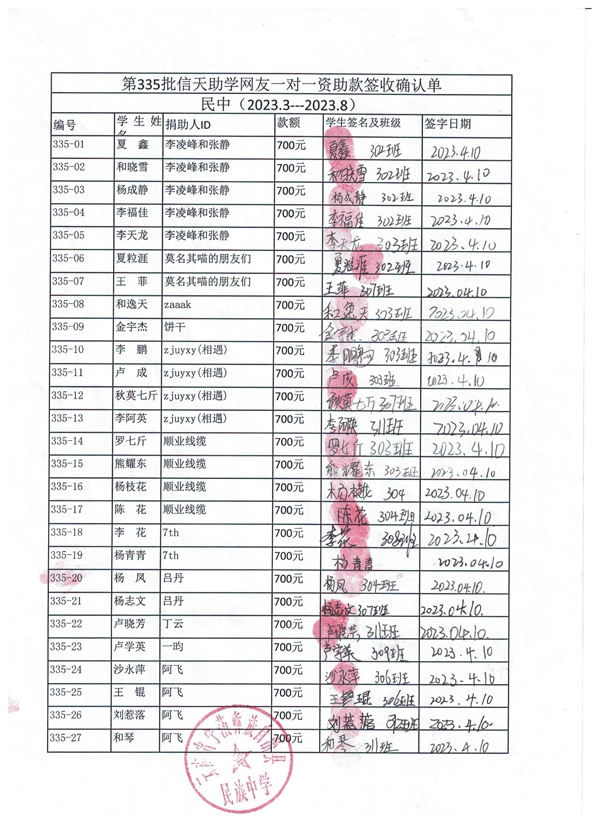 第335批信天助学网友一对一资助款签收确认单
民中（2023.3---2023.8）
编号 学生姓名 捐助人ID 款额 学生签名及班级 签字日期
335-01 夏 鑫 李凌峰和张静 700元 夏鑫 302班 2023.4.10
335-02 和晓雪 李凌峰和张静 700元 和晓雪 302班 2023.4.10
335-03 杨成静 李凌峰和张静 700元 杨成静 302班 2023.4.10
335-04 李福佳 李凌峰和张静 700元 李福佳 302班 2023.4.10
335-05 李天龙 李凌峰和张静 700元 李天龙 303班 2023.4.10
335-06 夏粒涯 莫名其喵的朋友们 700元 夏粒涯 302班 2023.4.10
335-07 王 菲 莫名其喵的朋友们 700元 王菲 307班 2023.04.10
335-08 和逸天 zaaak 700元 和逸天 303班 2023.04.10
335-09 金宇杰 饼干 700元 金宇杰 303班 2023.04.10
335-10 李 鹏 zjuyxy(相遇) 700元 李鹏 303班 2023.4. 10
335-11 卢 成 zjuyxy(相遇) 700元 卢成 303班 2023.4.10
335-12 秋莫七斤 zjuyxy(相遇) 700元 秋莫七斤 307班 2023.04.10
335-13 李阿英 zjuyxy(相遇) 700元 李阿英 311班 2023.04.10
335-14 罗七斤 顺业线缆 700元 罗七斤 303班 2023.4.10
335-15 熊耀东 顺业线缆 700元 熊耀东 303班 2023.04.10
335-16 杨枝花 顺业线缆 700元 杨枝花 304 2023.04.10
335-17 陈 花 顺业线缆 700元 陈花 304班 2023.04.10
335-18 李 花 7th 700元 李花 308班 2023.4.10
335-19 杨青青 7th 700元 杨青青 2023.04.10
335-20 杨 凤 吕丹 700元 杨凤 304班 2023.04.10
335-21 杨志文 吕丹 700元 杨志文 307班 2023.04.10.
335-22 卢晓芳 丁云 700元 卢晓芳 311班 2023.04.10.
335-23 卢学英 一昀 700元 卢学英 309班 2023.4.10
335-24 沙永萍 阿飞 700元 沙永萍 306班 2023.4.10
335-25 王 锟 阿飞 700元 王 锟 306班 2023.4.10
335-26 刘惹落 阿飞 700元 刘惹落 312班 2023.4.10.
335-27 和琴 阿飞 700元 和琴 311班 2023.4.10
云南省宁蒗彝族自治县
民族中学